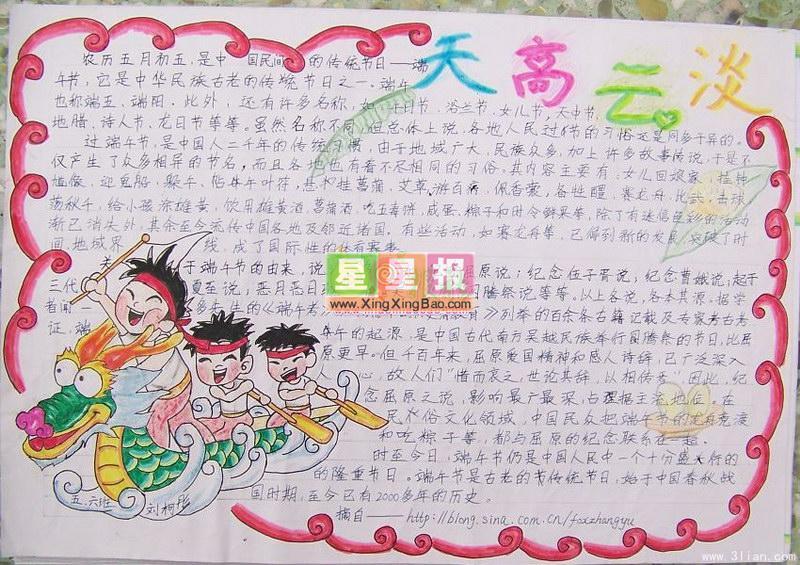 天高云淡
农历五月初五,是中 国民间 的传统节日——端
午节,它是中华民族古老的传统节日之一。端午
也称端五,端阳。此外,还有许多名称,如: 午日节、浴兰节,女儿节,天中节、
地腊、诗人节、龙日节等等。虽然名称不同,但总体上说,各地人民过节的习俗还是同多于异的。
过端午节,是中国人二千年的传统习惯,由于地域广大,民族众多,加上许多故事传说,于是不
仅产生了众多相异的节名,而且各地也有着不尽相同的习俗。其内容主要有:女儿回娘家,挂钟
馗像,迎鬼船、躲午、帖午叶符,悬挂菖蒲、艾草,游百病,佩香囊,备牲醴,赛龙舟,比武,击球,
荡秋千,给小孩涂雄黄,饮用雄黄酒、菖蒲酒,吃五毒饼、咸蛋、粽子和时令鲜果等,除了有迷信色彩的活动
渐已消失外,其余至今流传中国各地及邻近诸国。有些活动,如赛龙舟等,已得到新的发展,突破了时
间,地域界 线,成了国际性的体育赛事。
关 于端午节的由来,说 屈原说;纪念伍子胥说;纪念曹娥说;起于
三代 夏至说;恶月恶日 图腾祭说等等。以上各说,各本其源。据学
者闻一 多先生的《端午考 》列举的百余条古籍记载及专家考古考
证,端 午的起源,是中国古代南方吴越民族举行图腾祭的节日,比屈
原更早。但千百年来,屈原爱国精神和感人诗辞,已广泛深入
人 心,故人们“惜而哀之,世论其辞,以相传焉”因此,纪
念屈原之说,影响最广最深,占据主流地位。在
民 俗文化领域,中国民众把端午节的龙舟竞渡
和吃粽子等,都与屈原的纪念联系在一起。
时至今日,端午节仍是中国人民中一个十分盛行的
的隆重节日。端午节是古老的传统节日,始于中国春秋战
国时期,至今已有2000多年的历史。
摘自——http://blong.sina.com.cn/foxzhangyu
五.六班 刘柯彤
星星报
www.XingXingBao.com
www.3lian.com